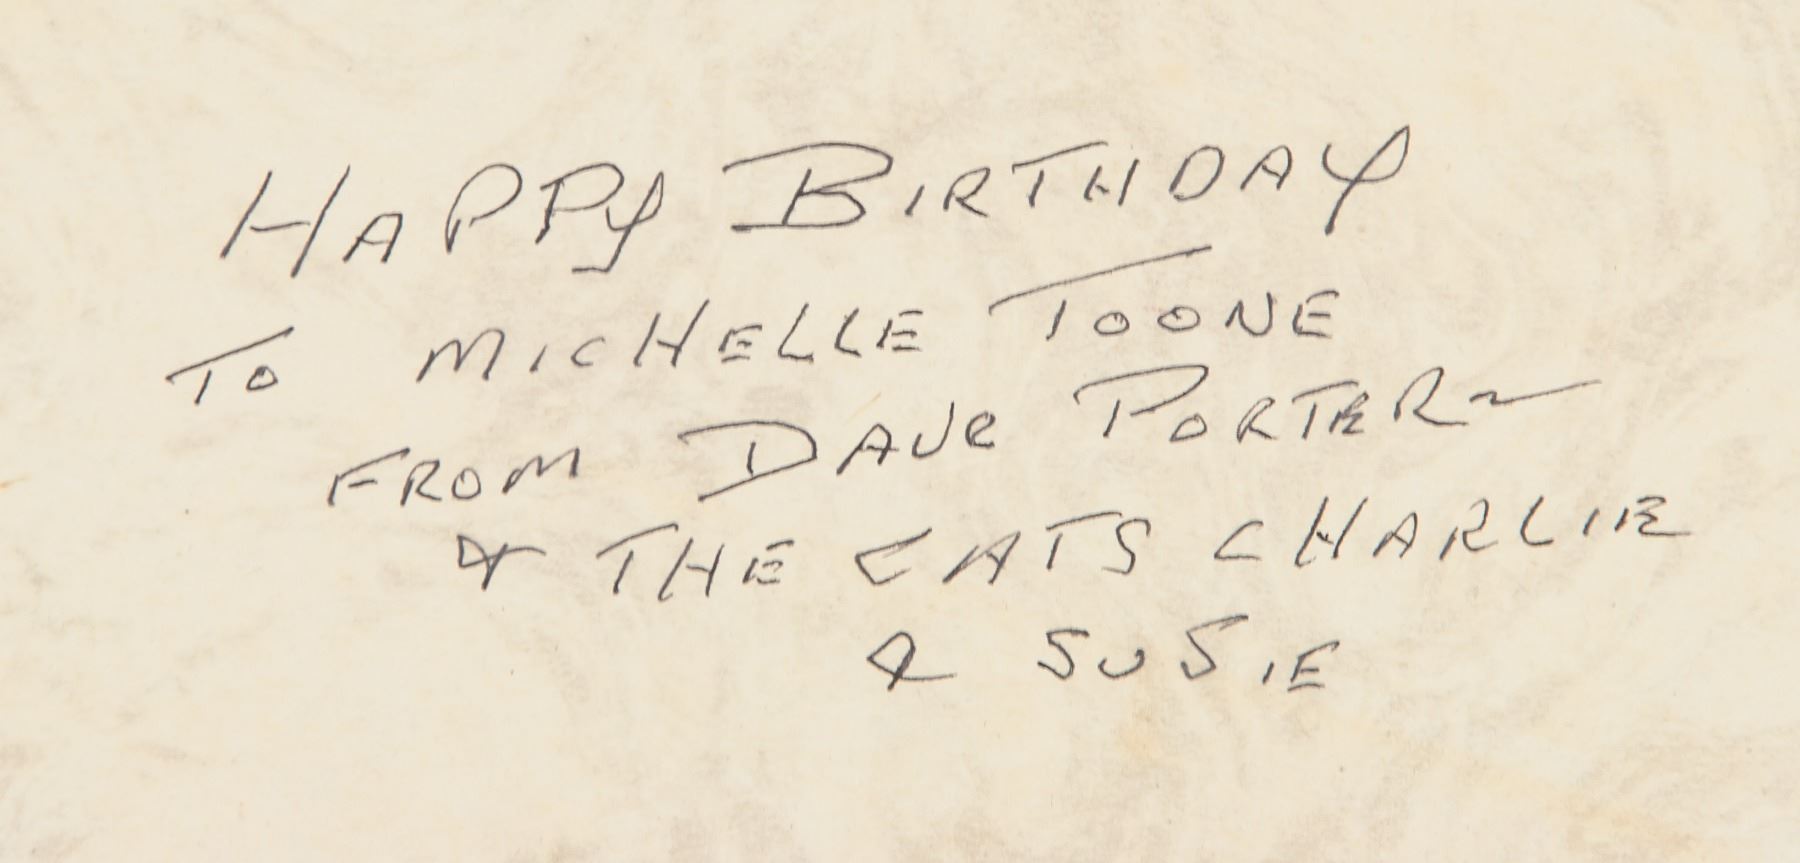 HAPPY BIRTHDAY
TO MICHELLE TOONE
FROM DAVE PORTER~
& THE CATS CHARLIE
& SUSIE